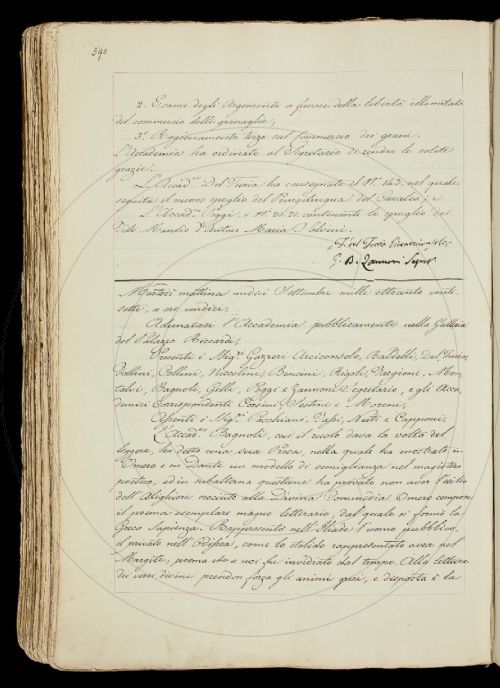 590
2. Esame degli Argomenti a favore della libertà illimitata
del commercio delle granaglie;
3.º Ragionamento terzo sul commercio dei grani.
L'Accademia ha ordinato al Segretario di render le solite
grazie.
L'Accad.co Del Furia ha consegnato il N.º 143. nel quale
seguita il nuovo spoglio del Pungilingua del Cavalca; e
L'Accad. Poggi, i N.i 20. 21. contenenti lo spoglio del
Tito Manlio d'Anton Maria Salvini.
F. del Furia
G. B. Zannoni Segret.
Martedì mattina undici Settembre mille ottocento venti
sette, a ore undici,
Adunatasi l'Accademia pubblicamente nella Galleria
del Palazzo Riccardi,
Presenti i Sig.ri Gazzeri Arciconsolo, Baldelli, Del Furia,
Follini, Collini, Niccolini, Bencini, Rigoli, Brigione, Mon-
talvi, Bagnoli, Gelli, Poggi e Zannoni Segretario, e gli Acca-
demici Corrispondenti Sestini e Moreni,
Assenti i Sig.ri Pacchiani, Nesti e Capponi,
L'Accad.co Bagnoli, cui il ruolo dava la volta del
leggere, ha detto una sua Prosa, nella quale ha mostrato in
Omero e in Dante un modello di somiglianza nel magistero
poetico, ed in subalterna questione ha provato non aver l'esilio
dell'Alighieri nociuto alla Divina Commedia. Omero compose
il poema esemplare magno letterario, dal quale si formò la
Greca Sapienza. Rappresentò nell'Iliade l'uomo pubblico,
il privato nell'Odissea, come lo stolido rappresentato avea nel
Margite, poema che a noi fu invidiato dal tempo. Alla lettura
dei versi divini prendon forza gli animi greci, e disposta è la